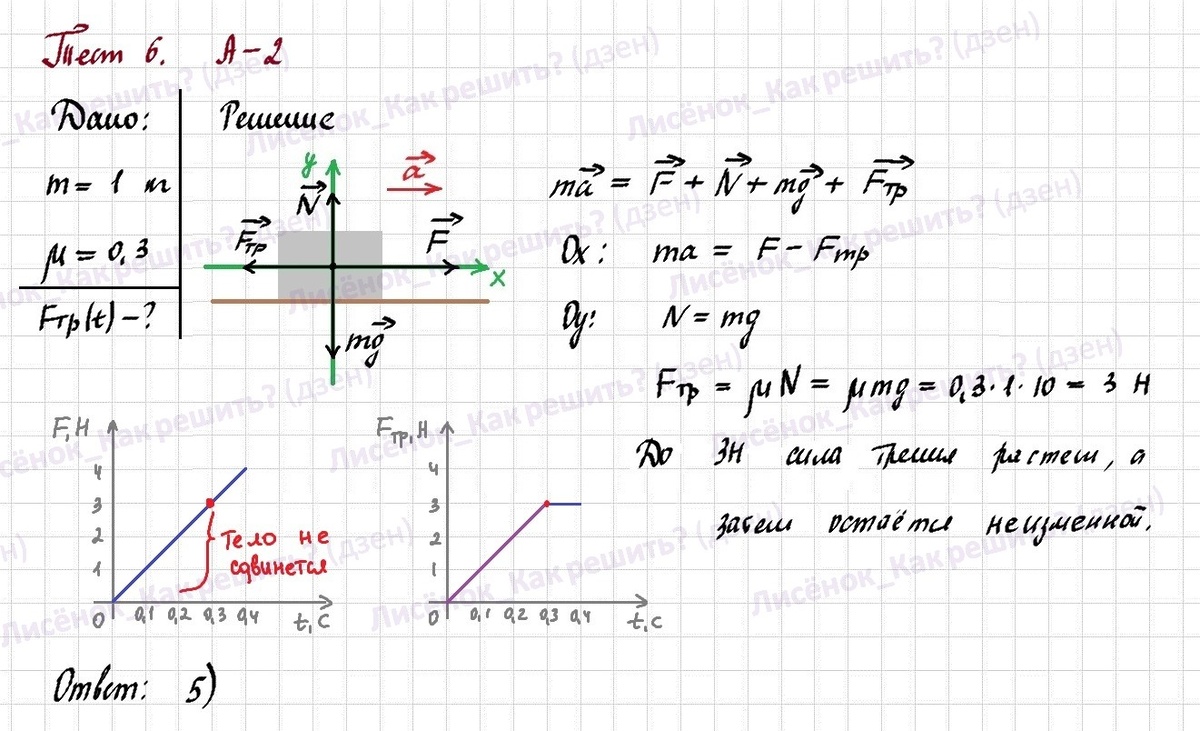 Тест 6. А-2
Дано:
m = 1 кг
μ = 0,3
Fтр(t) - ?
Решение
y
a
N
Fтр
F
x
mg
ma = F + N + mg + Fтр
Ox: ma = F - Fтр
Oy: N = mg
Fтр = μN = μmg = 0,3·1·10 = 3 Н
До 3Н сила трения растет, а
затем остаётся неизменной.
F, Н
4
3
2
1
0
0,1 0,2 0,3 0,4 t, с
Тело не
сдвинется
Fтр, Н
4
3
2
1
0
0,1 0,2 0,3 0,4 t, с
Ответ: 5)
Лисёнок_Как решить? (дзен)